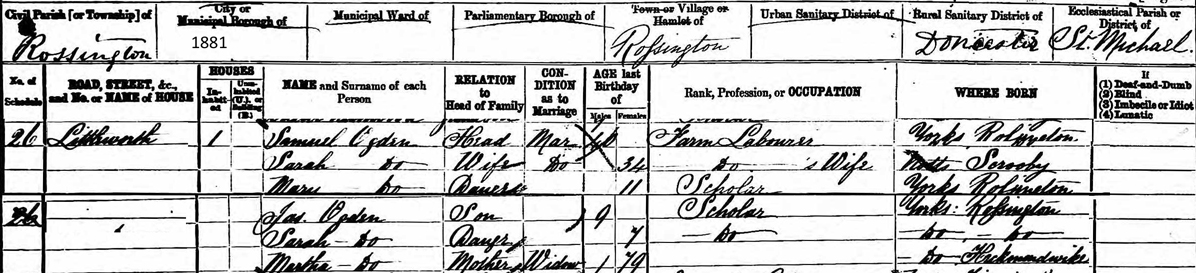 Civil Parish [or Township] of City or Municipal Borough of Municipal Ward of Parliamentary Borough of Town or Village or Hamlet of Urban Sanitary District of Rural Sanitary District of Ecclesiastical Parish or District of
Rossington 1881 Rossington Doncaster St. Michael
No. of Schedule ROAD, STREET, &c., and No. or NAME of HOUSE HOUSES Inhabited Uninhabited (U.), or Building (B.) NAME and Surname of each Person RELATION to Head of Family CONDITION as to Marriage AGE last Birthday of Males Females Rank, Profession, or OCCUPATION WHERE BORN If (1) Deaf-and-Dumb (2) Blind (3) Imbecile or Idiot (4) Lunatic
26 Littleworth 1 Samuel Ogden Head Mar 40 Farm Labourer Yorks Rossington
Sarah Do Wife Do 34 Do 's Wife Notts Scrooby
Mary Do Daur 11 Scholar Yorks Rossington
26 Jas. Ogden Son 9 Scholar Yorks: Rossington
Sarah - Do Daur 7 - Do - Do - Do
Martha - Do Mother Widow 79 Do Heckmondwike